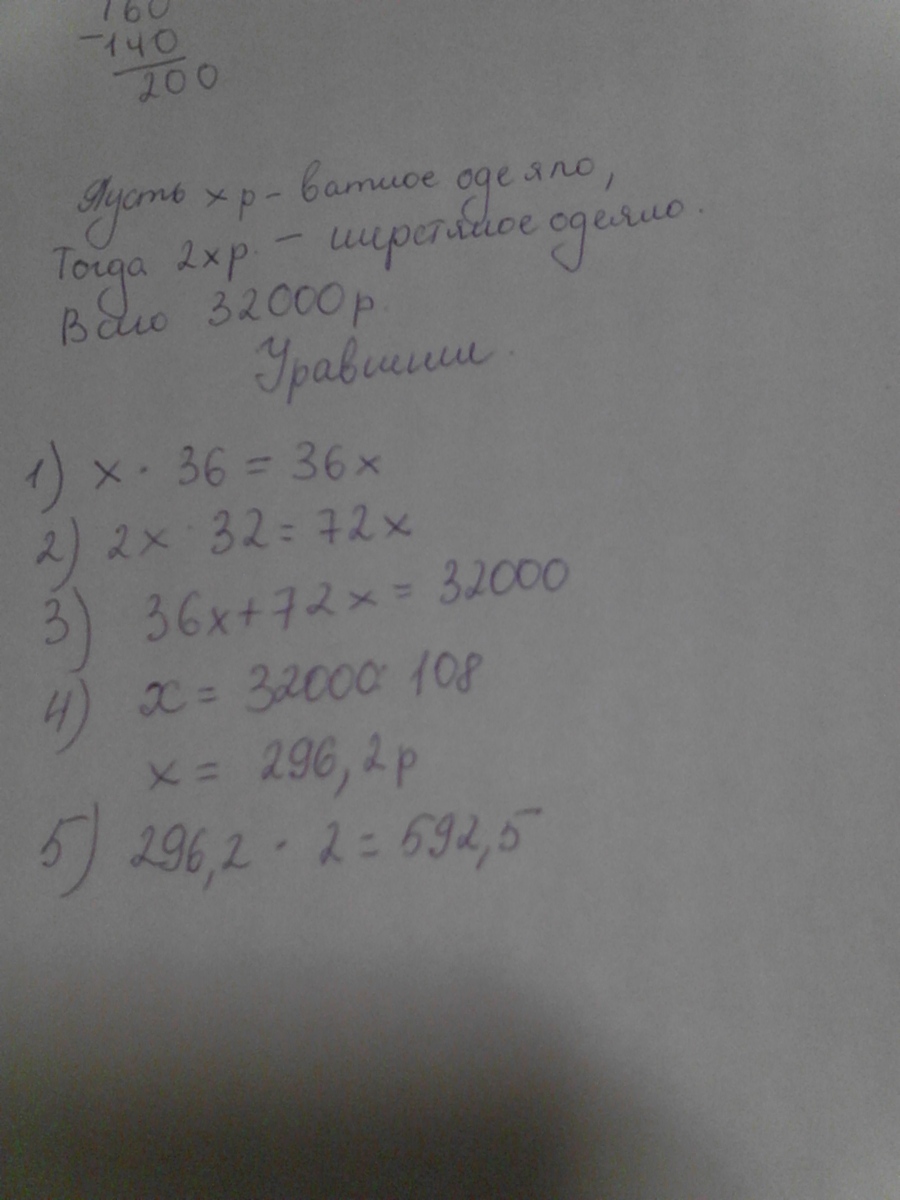 160
-140
200
Пусть x р - ватное одеяло,
Тогда 2x р. - шерстяное одеяло.
Всего 32000 р.
Уравнение.
1) x · 36 = 36x
2) 2x · 32 = 72x
3) 36x + 72x = 32000
4) x = 32000 : 108
x = 296,2 р
5) 296,2 · 2 = 592,5